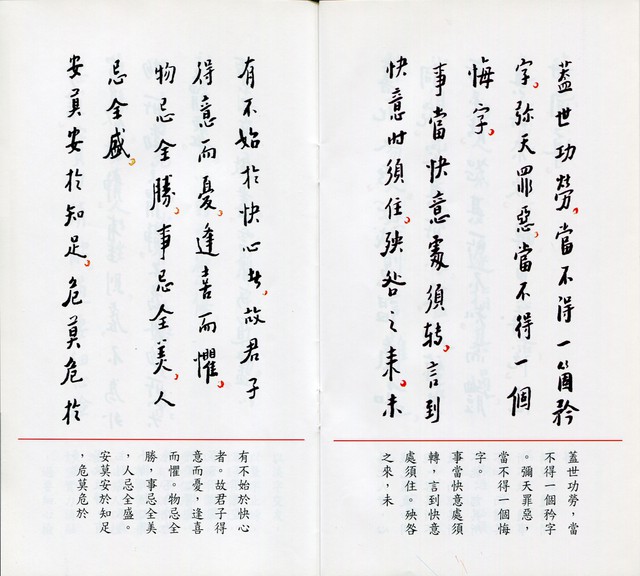 蓋世功勞。當不得一箇矜
字。弥天罪惡。當不得一個
悔字。
事當快意處須转。言到
快意时須住。殃咎之来。未
蓋世功勞，當
不得一個矜字
。彌天罪惡，
當不得一個悔
字。
事當快意處須
轉，言到快意
處須住。殃咎
之來，未
有不始於快心者。故君子
得意而憂。逢喜而懼。
物忌全勝。事忌全美。人
忌全盛。
安莫安於知足。危莫危於
有不始於快心
者。故君子得
意而憂，逢喜
而懼。物忌全
勝，事忌全美
，人忌全盛。
安莫安於知足
，危莫危於